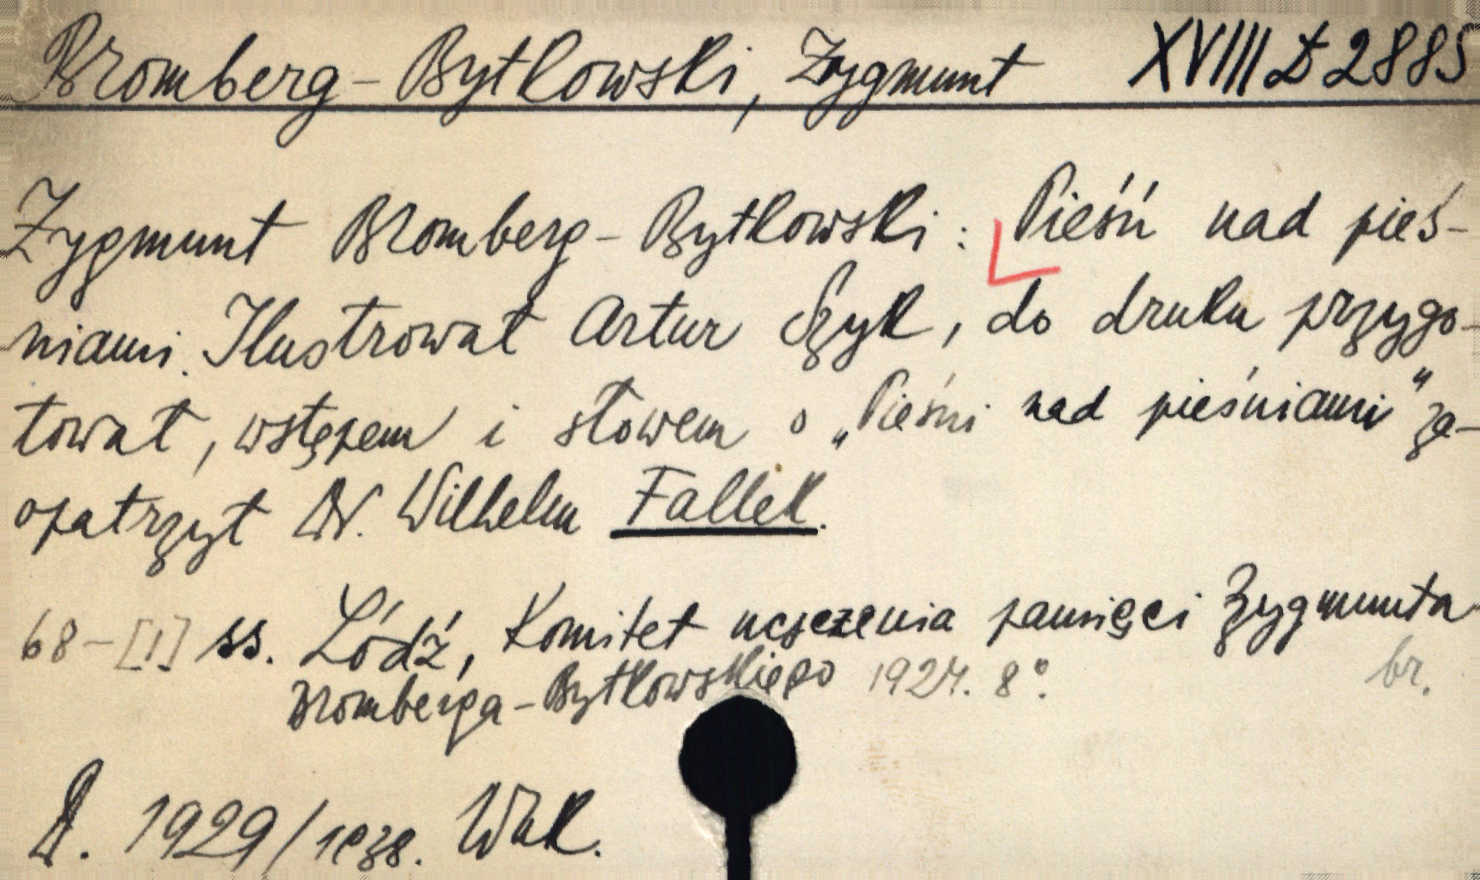 Bromberg-Bytkowski, Zygmunt XVIII D 2885
Zygmunt Bromberg-Bytkowski: Pieśń nad pieś-
niami. Ilustrował Artur Szyk, do druku przygo-
tował, wstępem i słowem o „Pieśni nad pieśniami" za-
opatrzył Dr. Wilhelm Fallek.
68-[1] ss. Łódź, Komitet uczczenia pamięci Zygmunta
Bromberga-Bytkowskiego 1924. 8°. br.
A. 1929/1038. Wak.